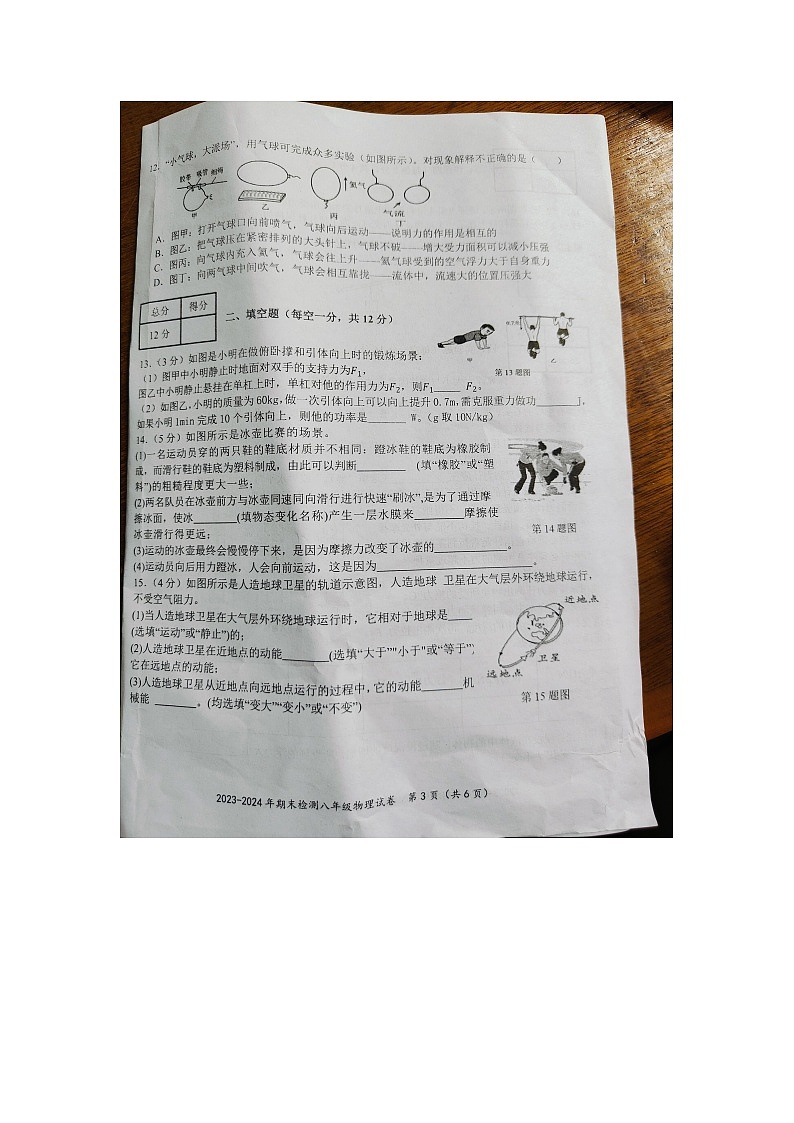 12. “小气球，大派场”，用气球可完成众多实验（如图所示）。对现象解释不正确的是（ ）
胶带 吸管 细绳
氦气
气流
甲 乙 丙 丁
A. 图甲：打开气球口向前喷气，气球向后运动——说明力的作用是相互的
B. 图乙：把气球压在紧密排列的大头针上，气球不破——增大受力面积可以减小压强
C. 图丙：向气球内充入氦气，气球会往上升——氦气球受到的空气浮力大于自身重力
D. 图丁：向两气球中间吹气，气球会相互靠拢——流体中，流速大的位置压强大
总分 得分
12分
二、填空题（每空一分，共12分）
13.（3分）如图是小明在做俯卧撑和引体向上时的锻炼场景；
（1）图甲中小明静止时地面对双手的支持力为F₁，
图乙中小明静止悬挂在单杠上时，单杠对他的作用力为F₂，则F₁____ F₂。
（2）如图乙,小明的质量为60kg,做一次引体向上可以向上提升0.7m,需克服重力做功______J,
如果小明1min完成10个引体向上，则他的功率是______ W。（g取10N/kg）
甲
第13题图
乙
14.（5分）如图所示是冰壶比赛的场景。
(1)一名运动员穿的两只鞋的鞋底材质并不相同：蹬冰鞋的鞋底为橡胶制
成，而滑行鞋的鞋底为塑料制成，由此可以判断_______ (填“橡胶”或“塑
料”)的粗糙程度更大一些；
(2)两名队员在冰壶前方与冰壶同速同向滑行进行快速“刷冰”,是为了通过摩
擦冰面，使冰______(填物态变化名称)产生一层水膜来_______摩擦使
冰壶滑行得更远；
(3)运动的冰壶最终会慢慢停下来，是因为摩擦力改变了冰壶的__________。
(4)运动员向后用力蹬冰，人会向前运动，这是因为______________________。
第14题图
15.（4分）如图所示是人造地球卫星的轨道示意图，人造地球 卫星在大气层外环绕地球运行，
不受空气阻力。
(1)当人造地球卫星在大气层外环绕地球运行时，它相对于地球是____
(选填“运动”或“静止”)的；
(2)人造地球卫星在近地点的动能_______(选填“大于”"小于"或“等于”)
它在远地点的动能；
(3)人造地球卫星从近地点向远地点运行的过程中，它的动能______机
械能 ______。(均选填“变大”“变小”或“不变”)
近地点
卫星
远地点
第15题图
2023-2024年期末检测八年级物理试卷 第3页（共6页）